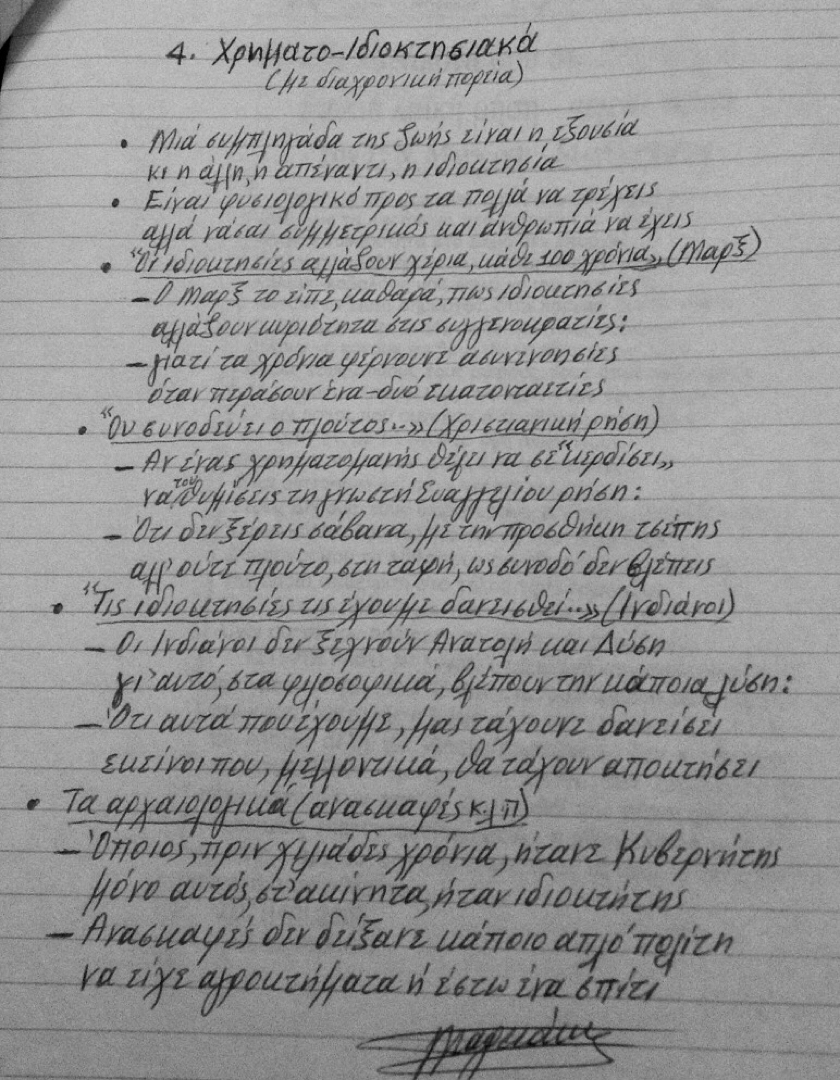 4. Χρηματο-Ιδιοκτησιακά
(με διαχρονική πορεία)
• Μιά συμπληγάδα της ζωής είναι η εξουσία
κι η άλλη, η απέναντι, η ιδιοκτησία
• Είναι φυσιολογικό προς τα πολλά να τρέχεις
αλλά νάσαι συμμετρικός και ανθρωπιά να έχεις
• "Οι ιδιοκτησίες αλλάζουν χέρια, κάθε 100 χρόνια" (Μαρξ)
- Ο Μαρξ το είπε, καθαρά, πως ιδιοκτησίες
αλλάζουν κυριότητα στις συγγενοκρατίες:
- γιατί τα χρόνια φέρνουνε ασυνενοησίες
όταν περάσουν ένα-δυό εκατονταετίες
• "Ου συνοδεύει ο πλούτος..» (Χριστιανική ρήση)
- Αν ένας χρηματομανής θέλει να σε "κερδίσει"
να του θυμίσεις τη γνωστή Ευαγγελίου ρήση:
- Ότι δεν ξέρεις σάβανα, με την προσθήκη τσέπης
αλλ' ούτε πλούτο, στη ταφή, ως συνοδό δεν βλέπεις
• "Τις ιδιοκτησίες τις έχουμε δανεισθεί..» (Ινδιάνοι)
- Οι Ινδιάνοι δεν ξεχνούν Ανατολή και Δύση
γι' αυτό, στα φιλοσοφικά, βλέπουν την κάποια λύση:
- Ότι αυτά που έχουμε, μας τάχουνε δανείσει
εκείνοι που, μελλοντικά, θα τάχουν αποκτήσει
• Τα αρχαιολογικά (ανασκαφές κ.λ.π)
- Όποιος, πριν χιλιάδες χρόνια, ήτανε Κυβερνήτης
μόνο αυτός, στ' ακίνητα, ήταν ιδιοκτήτης
- Ανασκαφές δεν δείξανε κάποιο απλό πολίτη
να είχε αγροκτήματα ή έστω ένα σπίτι